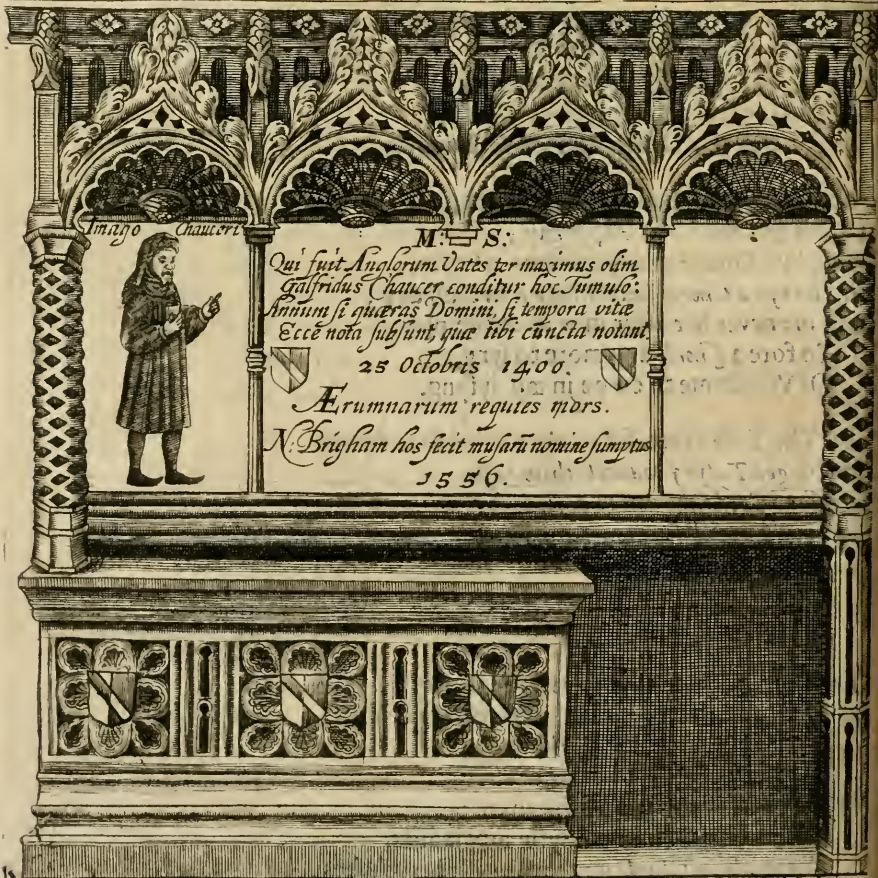 Imago Chauceri
M: S:
Qui fuit Anglorum Vates ter maximus olim
Galfridus Chaucer conditur hoc Tumulo:
Annum si quæras Domini, si tempora vitæ
Ecce nota subsunt, quæ tibi cuncta notant.
25 Octobris 1400.
Ærumnarum requies mors.
N: Brigham hos fecit musarū nomine sumptus
1556.